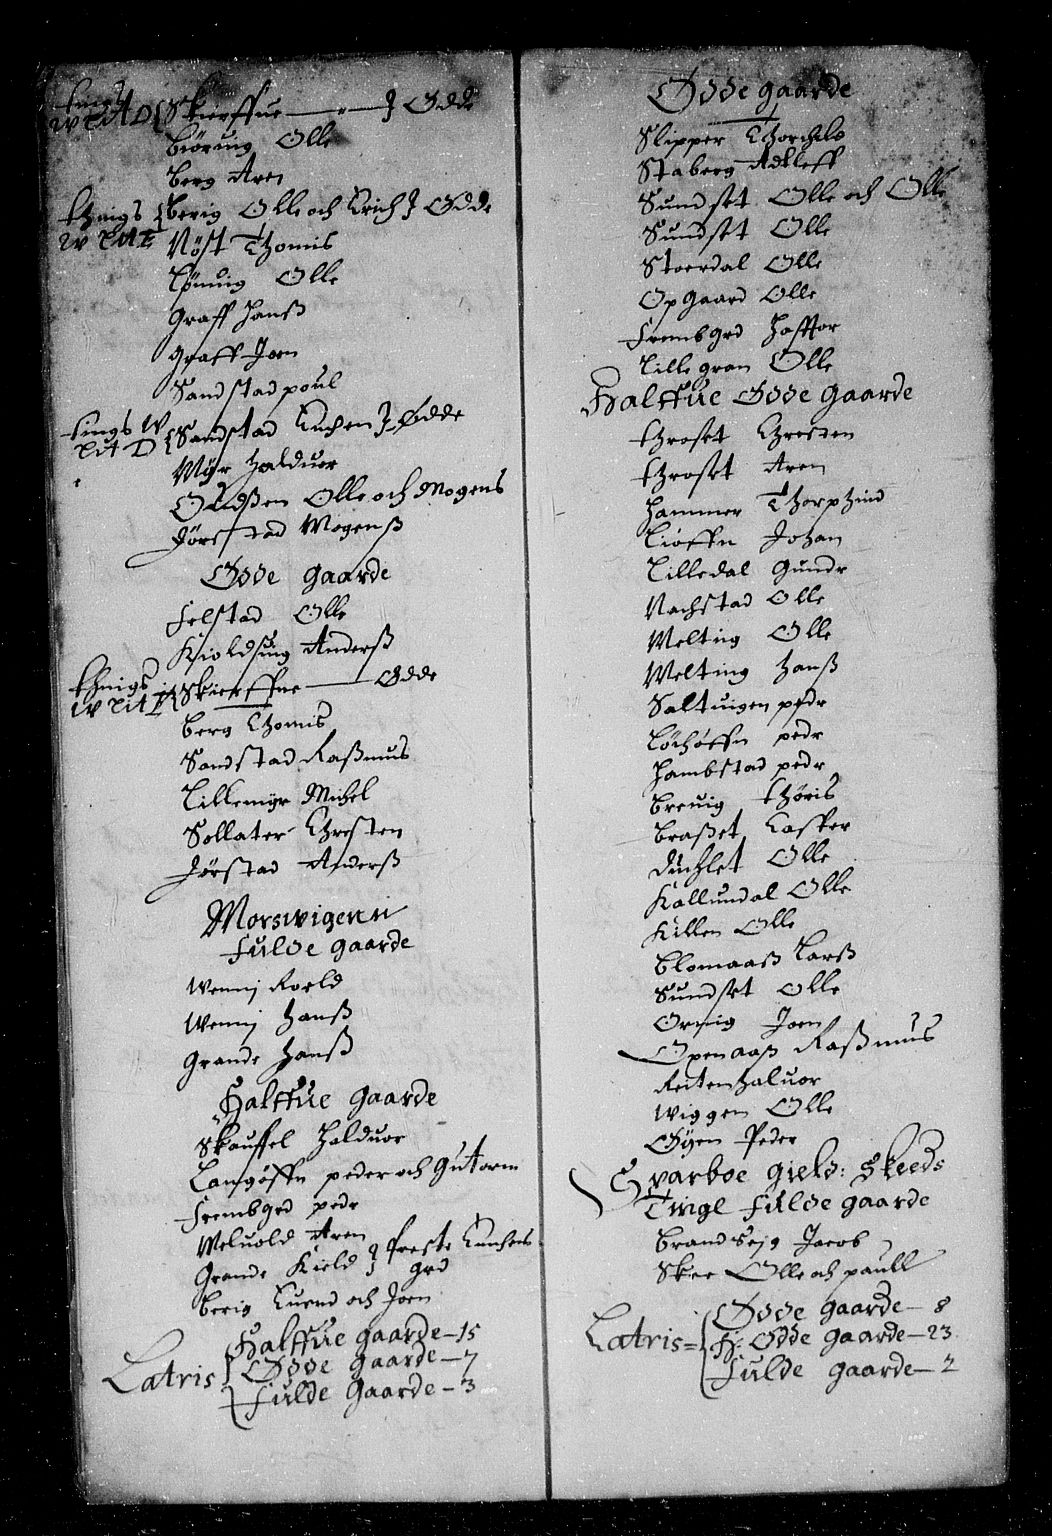 Skierffue — } Ødde
Biørnig Olle
Berg Aren
Berig Olle och Erich } Ødde
Nøst Thomis
Lønnig Olle
Graff Hanß
Graff Joen
Sandstad poul
Sandstad Knehen } Ødde
Myr Halduor
Oldßen Olle och Mogens
Jørstad Mogenß
Øde Gaarde
Felstad Olle
Kioldsing Anderß
Skierffue — Ødde
Berg Thomis
Sandstad Raßmus
Lillemyr Michel
Sollater Chresten
Jørstad Anderß
Morswigenn
Fulde Gaarde
Wennj Roeld
Wennj Hanß
Grande Hanß
Halffue Gaarde
Skauffel Halduor
Langøffn peder och Gutorm
Frembgrd pedr
Meluold Aren
Grande Kield } preste Enchens grd
Berig Suend och Joen
Latris
Halffue gaarde — 15
Øde gaarde — 7
Fulde Gaarde — 3
Øde gaarde
Slipper Thorchels
Staberg Adtleff
Sundset Olle och Olle
Sundset Olle
Stoerdal Olle
Opgaard Olle
Frembgrd Hafftor
Lille gran Olle
Halffue Øde Gaarde
Throset Chresten
Throset Aren
Hammer Thorphind
Liøffn Johan
Lilledal Gundr
Nachstad Olle
Melting Olle
Melting Hanß
Saltuigen pedr
Løchøffn pedr
Hambstad pedr
Breuig Thøris
Braßet Casper
Duchlet Olle
Kallundal Olle
Killen Olle
Blomaaß Larß
Sundset Olle
Ornig Joen
Openaaß Raßmus
Reiten Haluor
Wiggen Olle
Øyen Peder
Sparboe Gield: Skeeds
Tinge Fulde Gaarde
Brandsejg Jacob
Skee Olle och paull
Latris =
Øde Gaarde — 8
H: Ødde Gaarde — 23
Fulde gaarde — 2